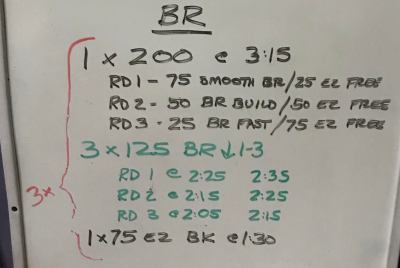 BR
1 x 200 @ 3:15
RD 1 - 75 SMOOTH BR/25 EZ FREE
RD 2 - 50 BR BUILD/50 EZ FREE
RD 3 - 25 BR FAST/75 EZ FREE
3 x 125 BR ↓ 1-3
RD 1 @ 2:25 2:35
RD 2 @ 2:15 2:25
RD 3 @ 2:05 2:15
3x
1x75 EZ BK @ 1:30